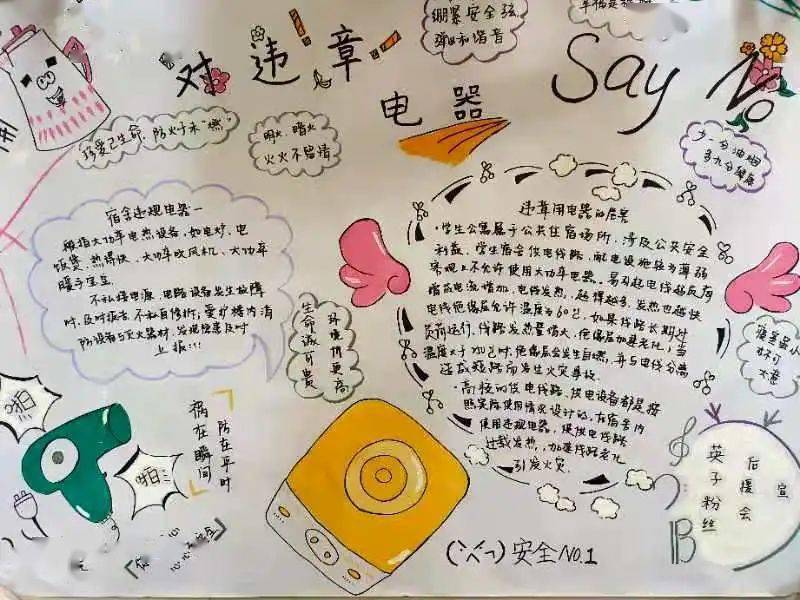 绷紧安全弦
弹好和谐音
对违章
电器
Say No
珍爱己生命,防火于未"燃"
明火、暗火
火火不留情
少一分油烟
多九分健康
宿舍违规电器一
般指大功率电热设备,如电炉、电
饭煲、热得快、大功率吹风机、大功率
暖手宝
不私接电源,电路设备发生故障
时,及时报告,不私自修拆;爱护楼内消
防设备与灭火器材,发现隐患及时
上报!!!
违章用电器的危害
·学生公寓属于公共住宿场所,涉及公共安全
利益。学生宿舍供电线路,耐电设施较为薄弱
客观上不允许使用大功率电器。易引起电线超负荷
电线绝缘层允许温度为60℃,如果线路长期过
负荷运行,线路发热量增大,绝缘层加速老化;当
时,绝缘层会发生自燃,并与电线分离
造成短路而发生火灾事故.
·高校的供电线路、供电设备都是按
照实际使用情况设计的,在宿舍内
使用违规电器,使供电线路
过载发热,加速线路老化
引发火灾.
生命诚可贵
环境价更高
啪!
啪!
祸在瞬间
防在平时
英子粉丝
后援会
宣
安全NO.1